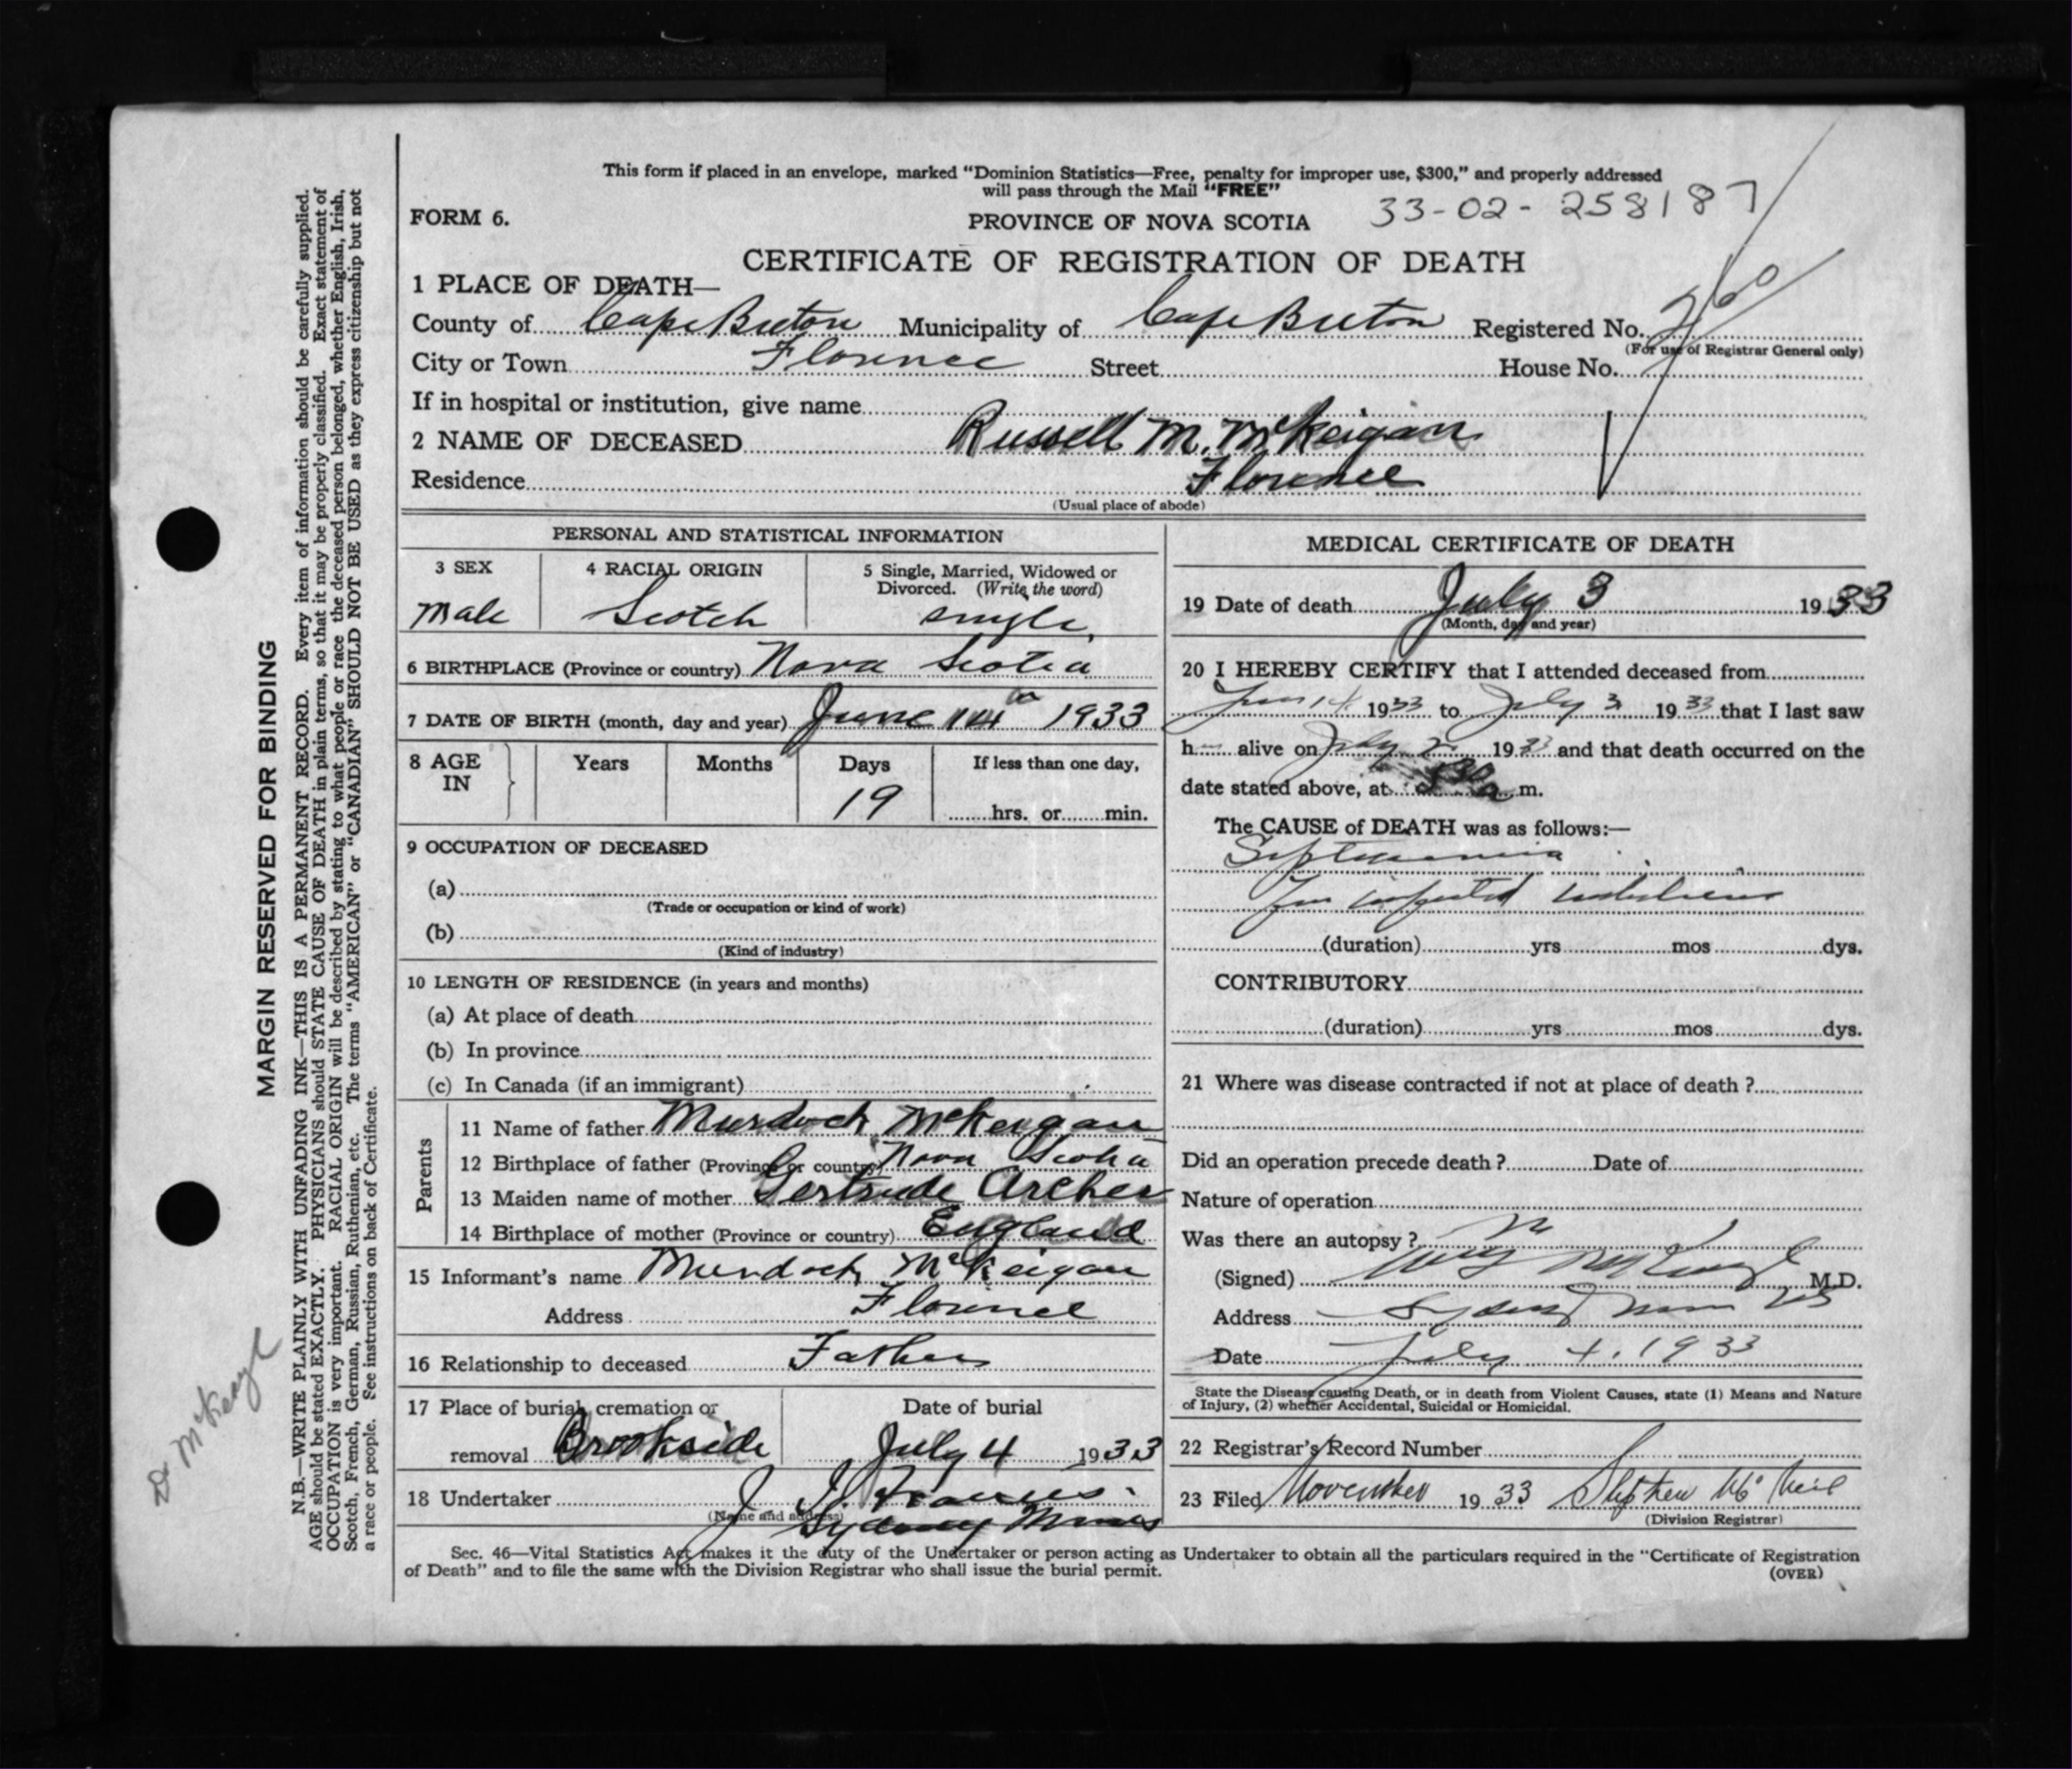 This form if placed in an envelope, marked "Dominion Statistics—Free, penalty for improper use, $300," and properly addressed
will pass through the Mail "FREE"
FORM 6.
PROVINCE OF NOVA SCOTIA 33-02-258187
CERTIFICATE OF REGISTRATION OF DEATH
1 PLACE OF DEATH—
County of Cape Breton Municipality of Cape Breton Registered No. 260
(For use of Registrar General only)
City or Town Florence Street House No.
If in hospital or institution, give name
2 NAME OF DECEASED Russell M. McKeigan
Residence Florence
(Usual place of abode)
PERSONAL AND STATISTICAL INFORMATION
3 SEX
Male
4 RACIAL ORIGIN
Scotch
5 Single, Married, Widowed or
Divorced. (Write the word)
single
6 BIRTHPLACE (Province or country) Nova Scotia
7 DATE OF BIRTH (month, day and year) June 14th 1933
8 AGE IN
Years Months Days If less than one day,
19 hrs. or min.
9 OCCUPATION OF DECEASED
(a)
(Trade or occupation or kind of work)
(b)
(Kind of industry)
10 LENGTH OF RESIDENCE (in years and months)
(a) At place of death
(b) In province
(c) In Canada (if an immigrant)
Parents
11 Name of father Murdoch McKeigan
12 Birthplace of father (Province or country) Nova Scotia
13 Maiden name of mother Gertrude Archer
14 Birthplace of mother (Province or country) England
15 Informant's name Murdoch McKeigan
Address Florence
16 Relationship to deceased Father
17 Place of burial, cremation or
removal Brookside
Date of burial
July 4 1933
18 Undertaker J. H. Francis
(Name and address) Sydney Mines
MEDICAL CERTIFICATE OF DEATH
19 Date of death July 3 1933
(Month, day and year)
20 I HEREBY CERTIFY that I attended deceased from
June 14 1933 to July 3 1933 that I last saw
h alive on July 2 1933 and that death occurred on the
date stated above, at m.
The CAUSE of DEATH was as follows:—
Septicaemia
from infected umbilicus
(duration) yrs mos dys.
CONTRIBUTORY
(duration) yrs mos dys.
21 Where was disease contracted if not at place of death ?
Did an operation precede death ? Date of
Nature of operation
Was there an autopsy ? No
(Signed) M.D.
Address Sydney Mines NS
Date July 4. 1933
State the Disease causing Death, or in death from Violent Causes, state (1) Means and Nature
of Injury, (2) whether Accidental, Suicidal or Homicidal.
22 Registrar's Record Number
23 Filed November 1933 Stephen McNeil
(Division Registrar)
Sec. 46—Vital Statistics Act makes it the duty of the Undertaker or person acting as Undertaker to obtain all the particulars required in the "Certificate of Registration
of Death" and to file the same with the Division Registrar who shall issue the burial permit.
(OVER)
MARGIN RESERVED FOR BINDING
N.B.—WRITE PLAINLY WITH UNFADING INK—THIS IS A PERMANENT RECORD. Every item of information should be carefully supplied.
AGE should be stated EXACTLY. PHYSICIANS should STATE CAUSE OF DEATH in plain terms, so that it may be properly classified. Exact statement of
OCCUPATION is very important. RACIAL ORIGIN will be described by stating to what people or race the deceased person belonged, whether English, Irish,
Scotch, French, German, Russian, Ruthenian, etc. The terms "AMERICAN" or "CANADIAN" SHOULD NOT BE USED as they express citizenship but not
a race or people. See instructions on back of Certificate.
Dr